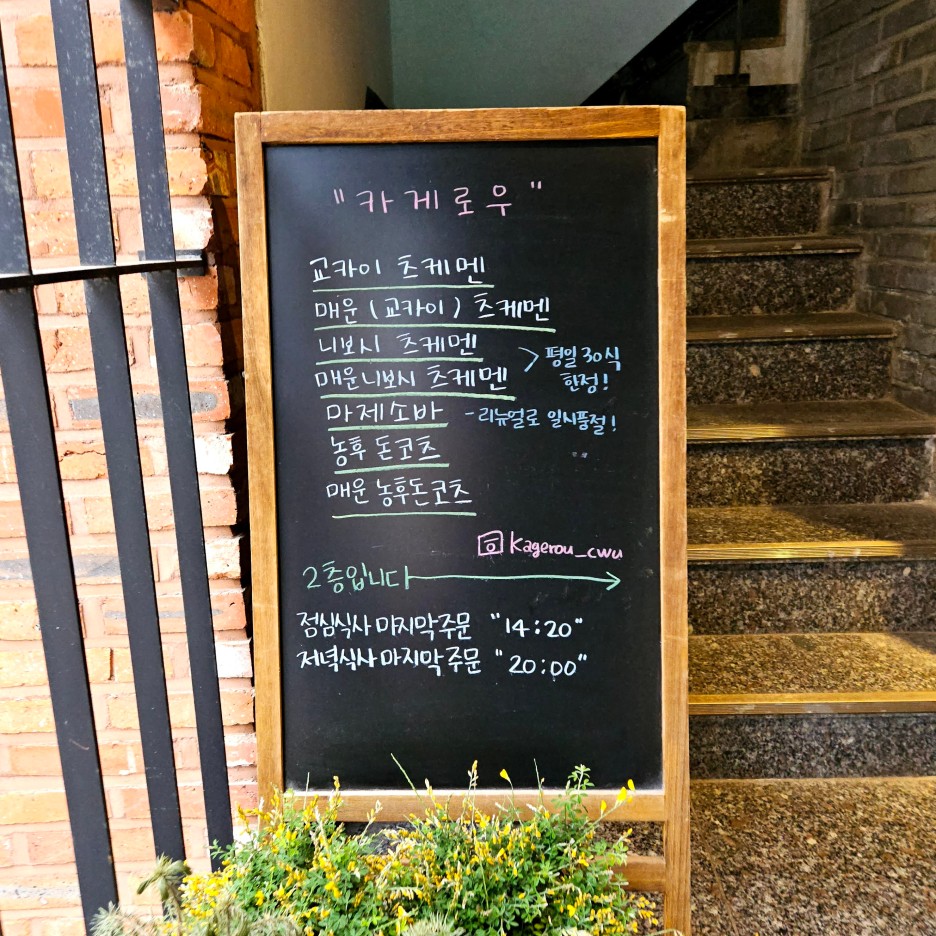 "카게로우"
교카이 츠케멘
매운 (교카이) 츠케멘
니보시 츠케멘
매운니보시 츠케멘
> 평일 30식
한정!
마제소바 - 리뉴얼로 일시품절!
농후 돈코츠
매운 농후돈코츠
Kagerou_cwu
2층입니다
점심식사 마지막주문 "14:20"
저녁식사 마지막주문 "20:00"